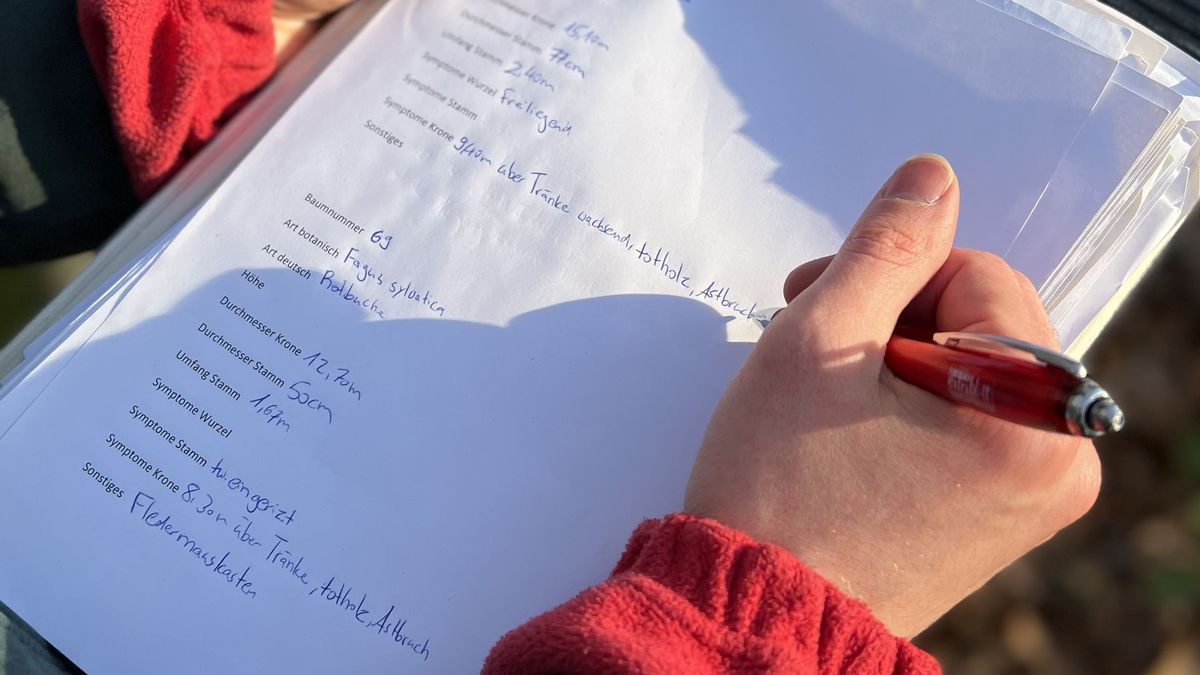 Durchmesser Krone 15,10m
Durchmesser Stamm 77cm
Umfang Stamm 2,40m
Symptome Wurzel Freiliegend
Symptome Stamm
Symptome Krone 9,40m über Tränke wachsend, totholz, Astbruch
Sonstiges
Baumnummer 69
Art botanisch Fagus sylvatica
Art deutsch Rotbuche
Höhe
Durchmesser Krone 12,70m
Durchmesser Stamm 50cm
Umfang Stamm 1,67m
Symptome Wurzel
Symptome Stamm tw. eingerizt
Symptome Krone 8,30m über Tränke, totholz, Astbruch
Sonstiges Fledermauskasten